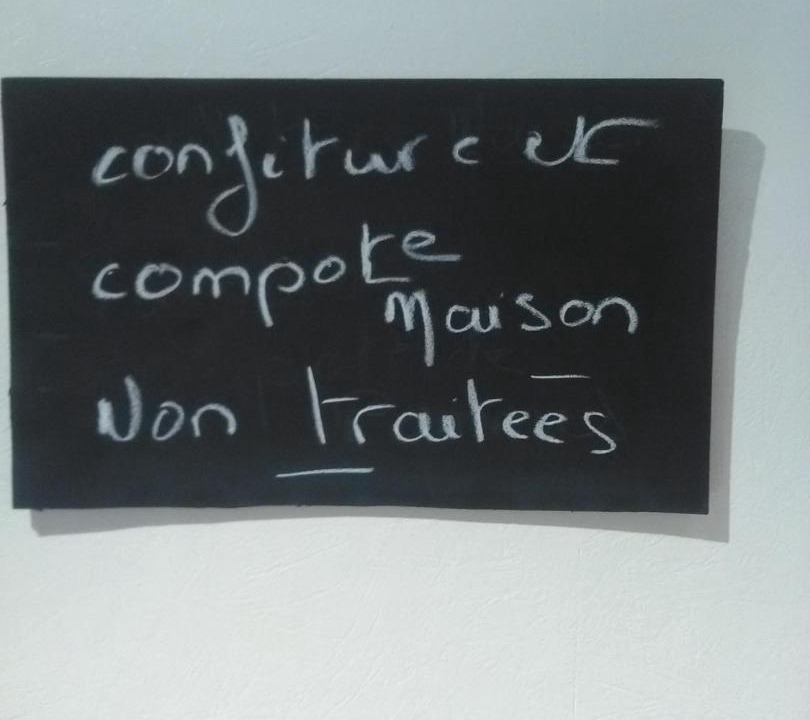 confiture et
compote
Maison
Non traitees